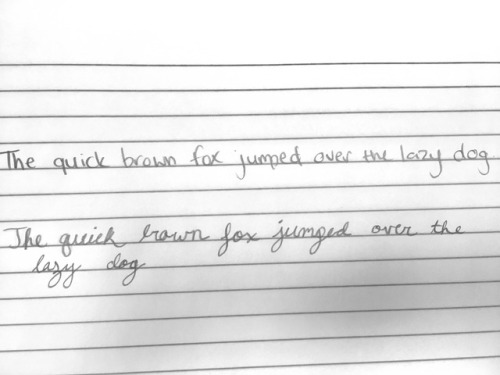 The quick brown fox jumped over the lazy dog
The quick brown fox jumped over the
lazy dog